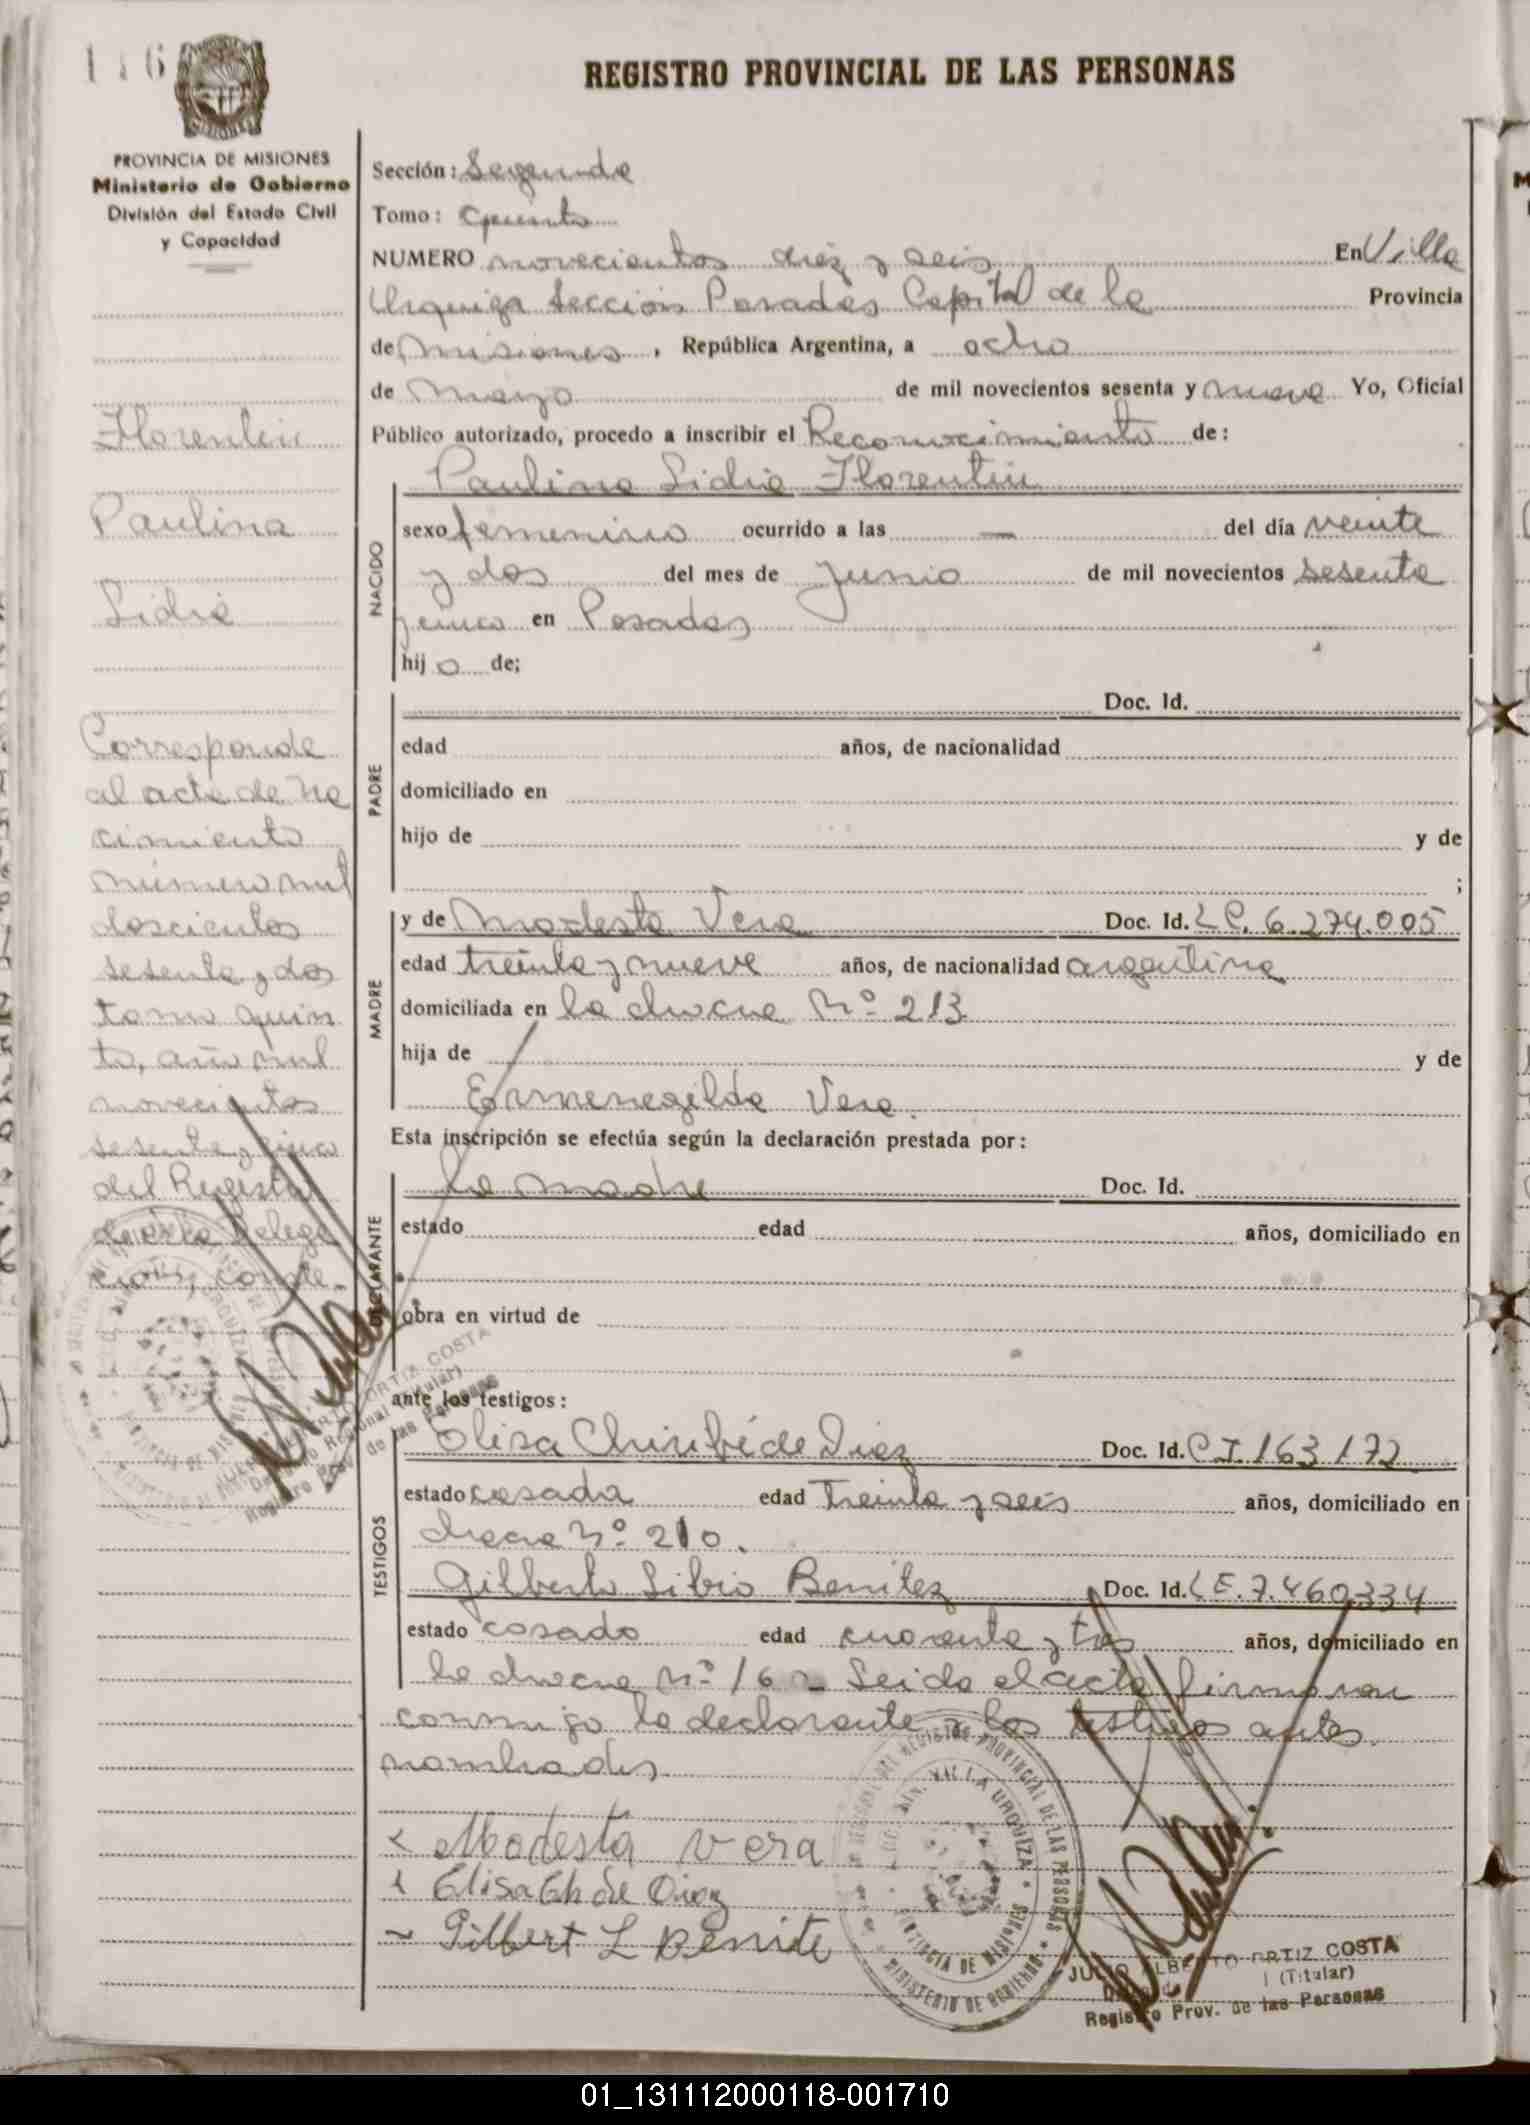 116
REGISTRO PROVINCIAL DE LAS PERSONAS
PROVINCIA DE MISIONES
Ministerio de Gobierno
División del Estado Civil
y Capacidad
Florentin
Paulina
Lidia
Corresponde
al acta de na
cimiento
número mil
doscientos
sesenta y dos
tomo quin
to, año mil
novecientos
sesenta y cinco
del Registro
de esta Delega
cion, conste.-
Sección: Segunda
Tomo: Quinto
NUMERO novecientos diez y seis En Villa
Urquiza Sección Posadas Capital de la Provincia
de Misiones, República Argentina, a ocho
de Marzo de mil novecientos sesenta y nueve Yo, Oficial
Público autorizado, procedo a inscribir el Reconocimiento de:
NACIDO
Paulina Lidia Florentin
sexo femenino ocurrido a las — del día veinte
y dos del mes de Junio de mil novecientos sesenta
y cinco en Posadas
hij a de;
PADRE
Doc. Id.
edad años, de nacionalidad
domiciliado en
hijo de y de
;
MADRE
y de Modesta Vera Doc. Id. LC. 6.274.005
edad treinta y nueve años, de nacionalidad argentina
domiciliada en la chacra Nº 213
hija de y de
Ermenegilda Vera.
Esta inscripción se efectúa según la declaración prestada por:
DECLARANTE
La madre Doc. Id.
estado edad años, domiciliado en
obra en virtud de
ante los testigos:
TESTIGOS
Elisa Chiribé de Diez Doc. Id. C I. 163.172
estado casada edad treinta y seis años, domiciliado en
chacra Nº 210.
Gilberto Libio Benitez Doc. Id. LE. 7.460.334
estado casado edad cuarenta y tres años, domiciliado en
la chacra Nº 16 Leida el acta firmaron
conmigo la declarante y los testigos antes
nombrados
Modesta Vera
Elisa Ch de Diez
Gilbert L Benite
VILLA URQUIZA
PROVINCIA DE MISIONES
MINISTERIO DE GOBIERNO
JULIO ALBERTO ORTIZ COSTA
(Titular)
Registro Prov. de las Personas
01_131112000118-001710